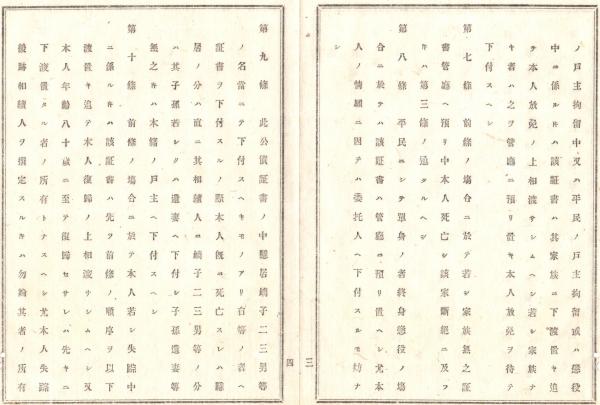 ノ戸主拘留中又ハ平民ノ戸主拘留或ハ懲役
中ニ係ルキハ該証書ハ其家族ニ下渡置キ追
テ本人放免ノ上相渡サシムヘシ若シ家族ナ
キ者ハ之ヲ管廳ニ預リ置キ本人放免ヲ待テ
下付スヘシ
第七條 前條ノ塲合ニ於テ若シ家族無之証
書管廳ヘ預リ中本人死亡シ該家斷絶ニ及フ
キハ第三條ノ通タルヘシ
第八條 平民ニシテ單身ノ者終身懲役ノ塲
合ニ於テハ該証書ハ管廳ニ預リ置ヘシ尤本
人ノ情願ニ因テハ委托人ヘ下付スルモ妨ナ
シ
三
第九條 此公債証書ノ中隱居嫡子二三男等
ノ名當ニテ下付スヘキモノアリ右等ノ者ヘ
証書ヲ下付スルノ際本人既ニ死亡スレハ隱
居ノ分ハ直ニ其相續人ニ嫡子二三男等ノ分
ハ其子孫若シクハ遺妻ヘ下付シ子孫遺妻等
無之キハ本籍ノ戸主ヘ下付スヘシ
第十條 前條ノ塲合ニ於テ本人若シ失踪中
ニ係ルキハ該証書ハ先ヲ前條ノ順序ヲ以下
渡置キ追テ本人復歸ノ上相渡サシムヘシ又
本人年齡八十歳ニ至テ復歸セサレハ先キニ
下渡置タル者ノ所有トナスヘシ尤本人失踪
後跡相續人ヲ指定スルキハ勿論其者ノ所有
四